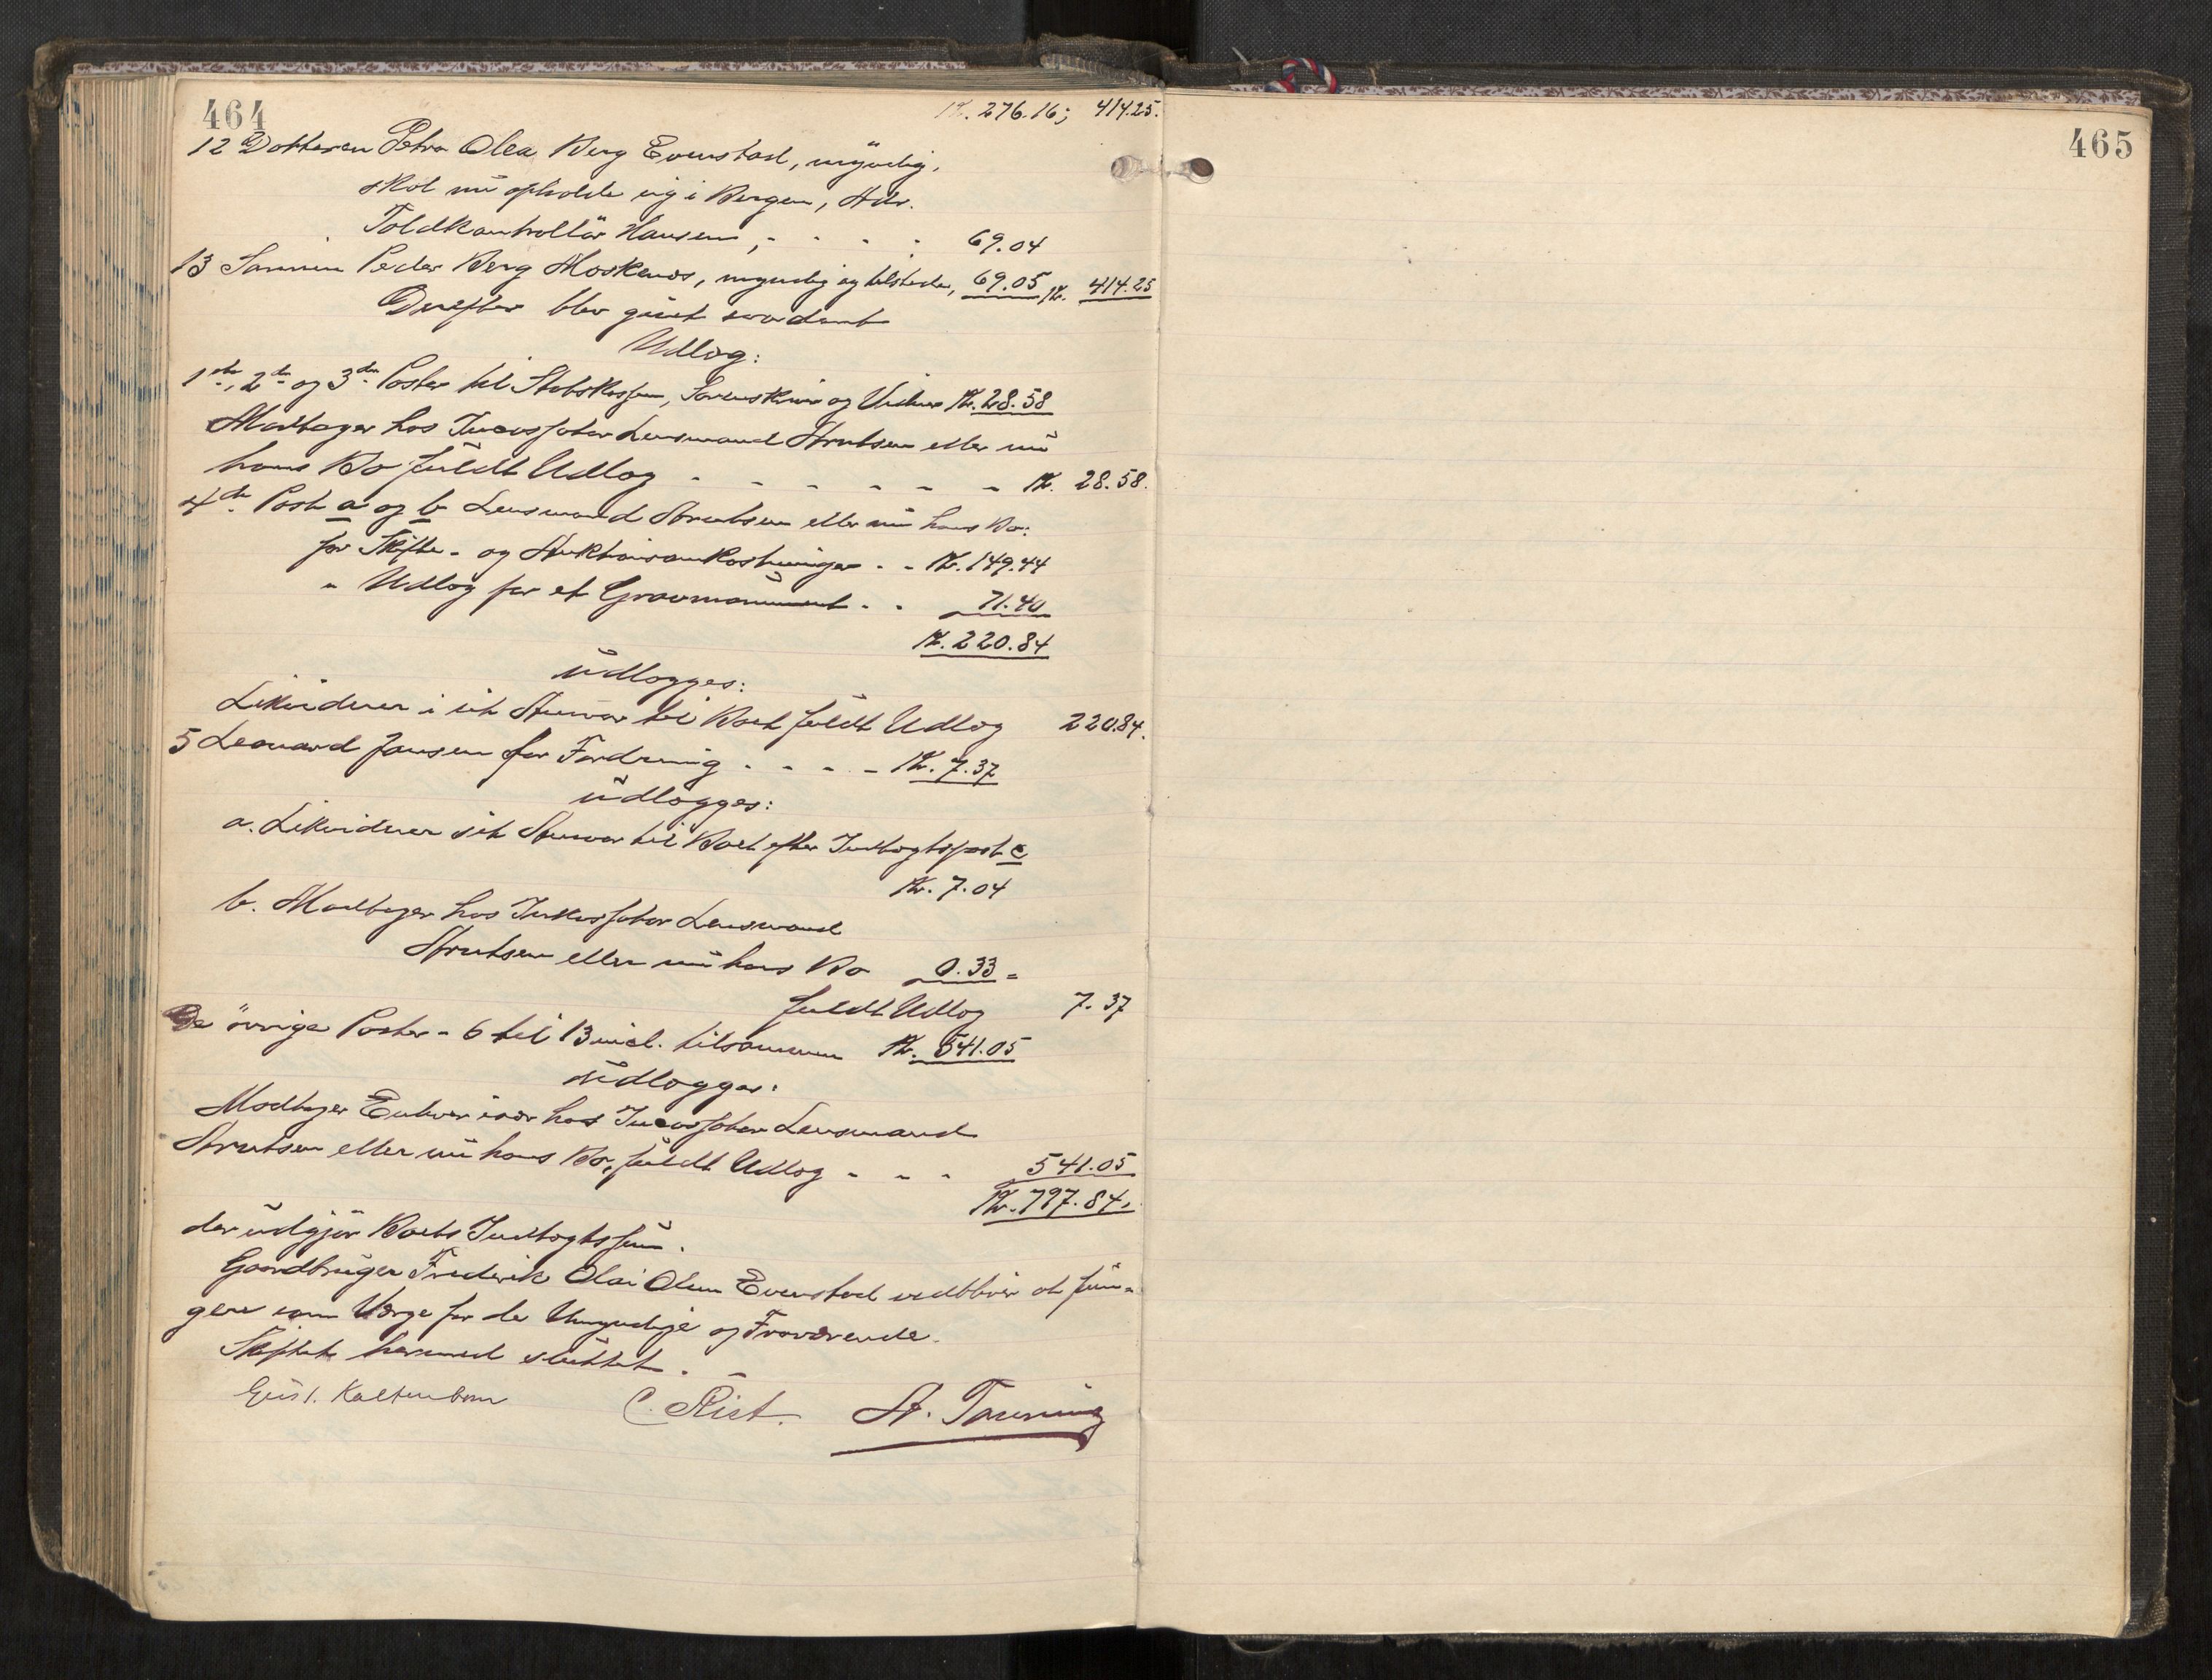 464
Kr. 276.16; 414.25.
12 Datteren Petra Olea Berg Evenstad, myndig,
skal nu opholde sig i Bergen, Adr.
Toldkontrollør Hansen, - - - - 69.04
13 Sønnen Peder Berg Moskenes, myndig og tilstede, 69.05 Kr. 414.25
Derefter blev gjort saadant
Udlæg:
1ste, 2den og 3die Poster til Statskassen, Sorenskriver og Vidner Kr. 28.58
Modtager hos Incassator Lensmand Arntsen eller nu
hans Bo fuldt Udlæg - - - - - - Kr. 28.58.
4de Post a og b Lensmand Arntsen eller nu hans Bo:
for Skifte- og Auktionsomkostninger - - Kr. 149.44
" Udlæg for et Gravmonument - - 71.40
Kr. 220.84
udlægges:
Likviderer i sit Ansvar til Boet fuldt Udlæg 220.84.
5 Leonard Jansen for Fordring - - - - Kr. 7.37
udlægges:
a. Likviderer sit Ansvar til Boet efter Indtægtspost c
Kr. 7.04
b. Modtager hos Inkassator Lensmand
Arntsen eller nu hans Bo 0.33 =
fuldt Udlæg 7.37
De øvrige Poster - 6 til 13 incl. tilsammen Kr. 541.05
udlægges:
Modtager Enhver især hos Incassator Lensmand
Arntsen eller nu hans Bo, fuldt Udlæg - - - 541.05
Kr. 797.84,
der udgjør Boets Indtægtssum.
Gaardbruger Frederik Olai Olsen Evenstad vedbliver at fun-
gere som Værge for de Umyndige og Fraværende.
Skiftet hermed sluttet. -
Gust. Kaltenborn C. Rist. A.
465